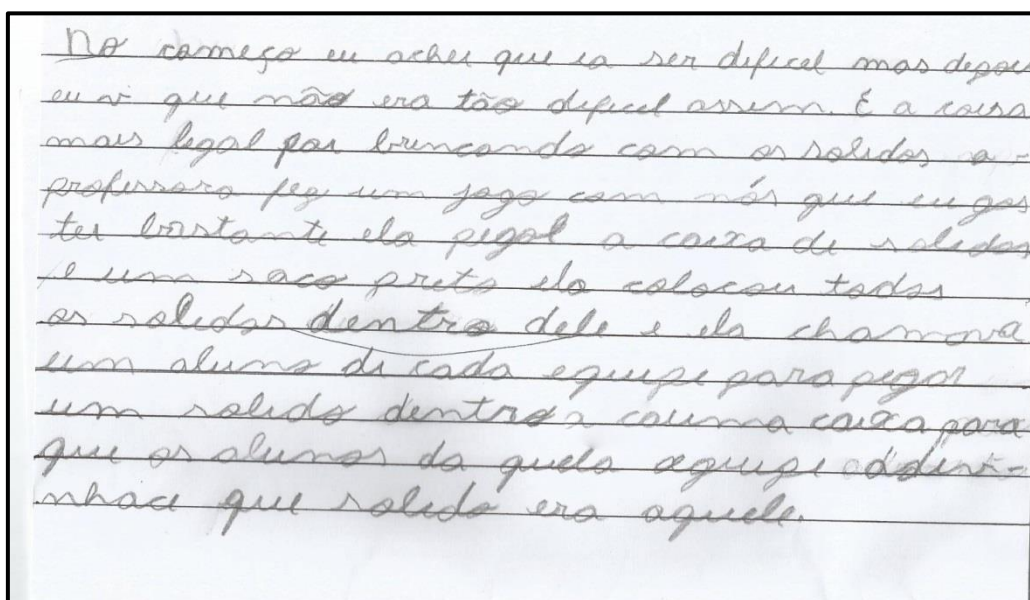 No começo eu achei que ia ser dificel mas depois
eu vi que não era tão dificel assim. É a coisa
mais legal foi brincando com os solidos a-
professora fez um jogo com nós que eu gos
tei bastante ela pegol a caixa de solidos
e um saco preto ela colocou todos
os solidos dentro dele e ela chamova
um aluno di cada equipe para pegar
um solido dentro caixa para
que os alunos da quela equipe adivi-
nhace que solido era aquele.